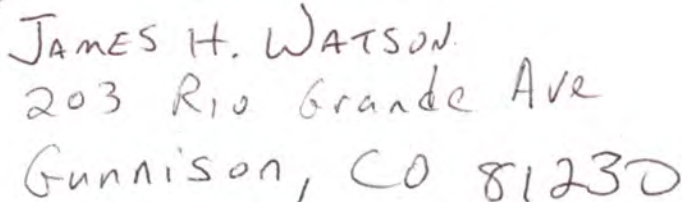 JAMES H. WATSON.
203 Rio Grande Ave
Gunnison, CO 81230